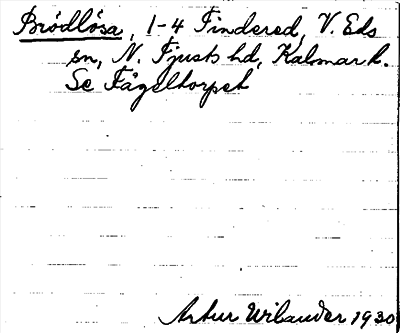 Brödlösa, 1-4 Findered, V. Eds
sn, N. Tjusts hd, Kalmar l.
Se Fågeltorpet
Artur Wilander 1930